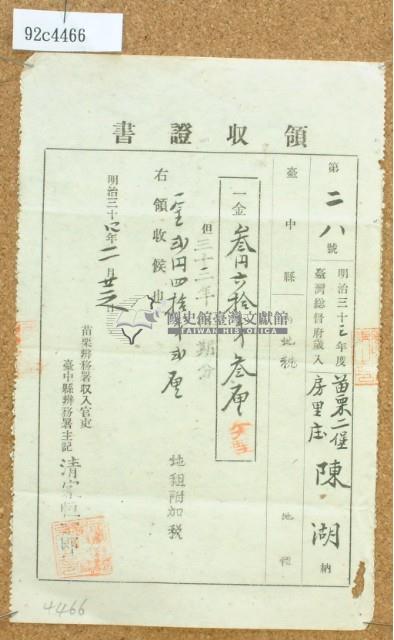 92c4466
領收證書
第二八號
明治三十三年度
臺灣總督府歲入
苗栗二堡
房里庄
陳湖 納
臺中縣 地稅 地租
一金叁円六拾 叁厘
但三十三年 期分
地租附加稅
右領收候也
明治三十 年二月 日
苗栗辨務署收入官吏
臺中縣辨務署主記
清家
國史館臺灣文獻館
TAIWAN HISTORICA
4466